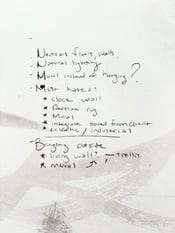 - Neutral floors, walls
- Natural lighting
- Mural instead of hanging?
- Must haves:
* clock wall
* Persian rug
* Mural
* integrate pieces from client
* eclectic / industrial
- Bringing outside
* living wall? - trellis
* mural